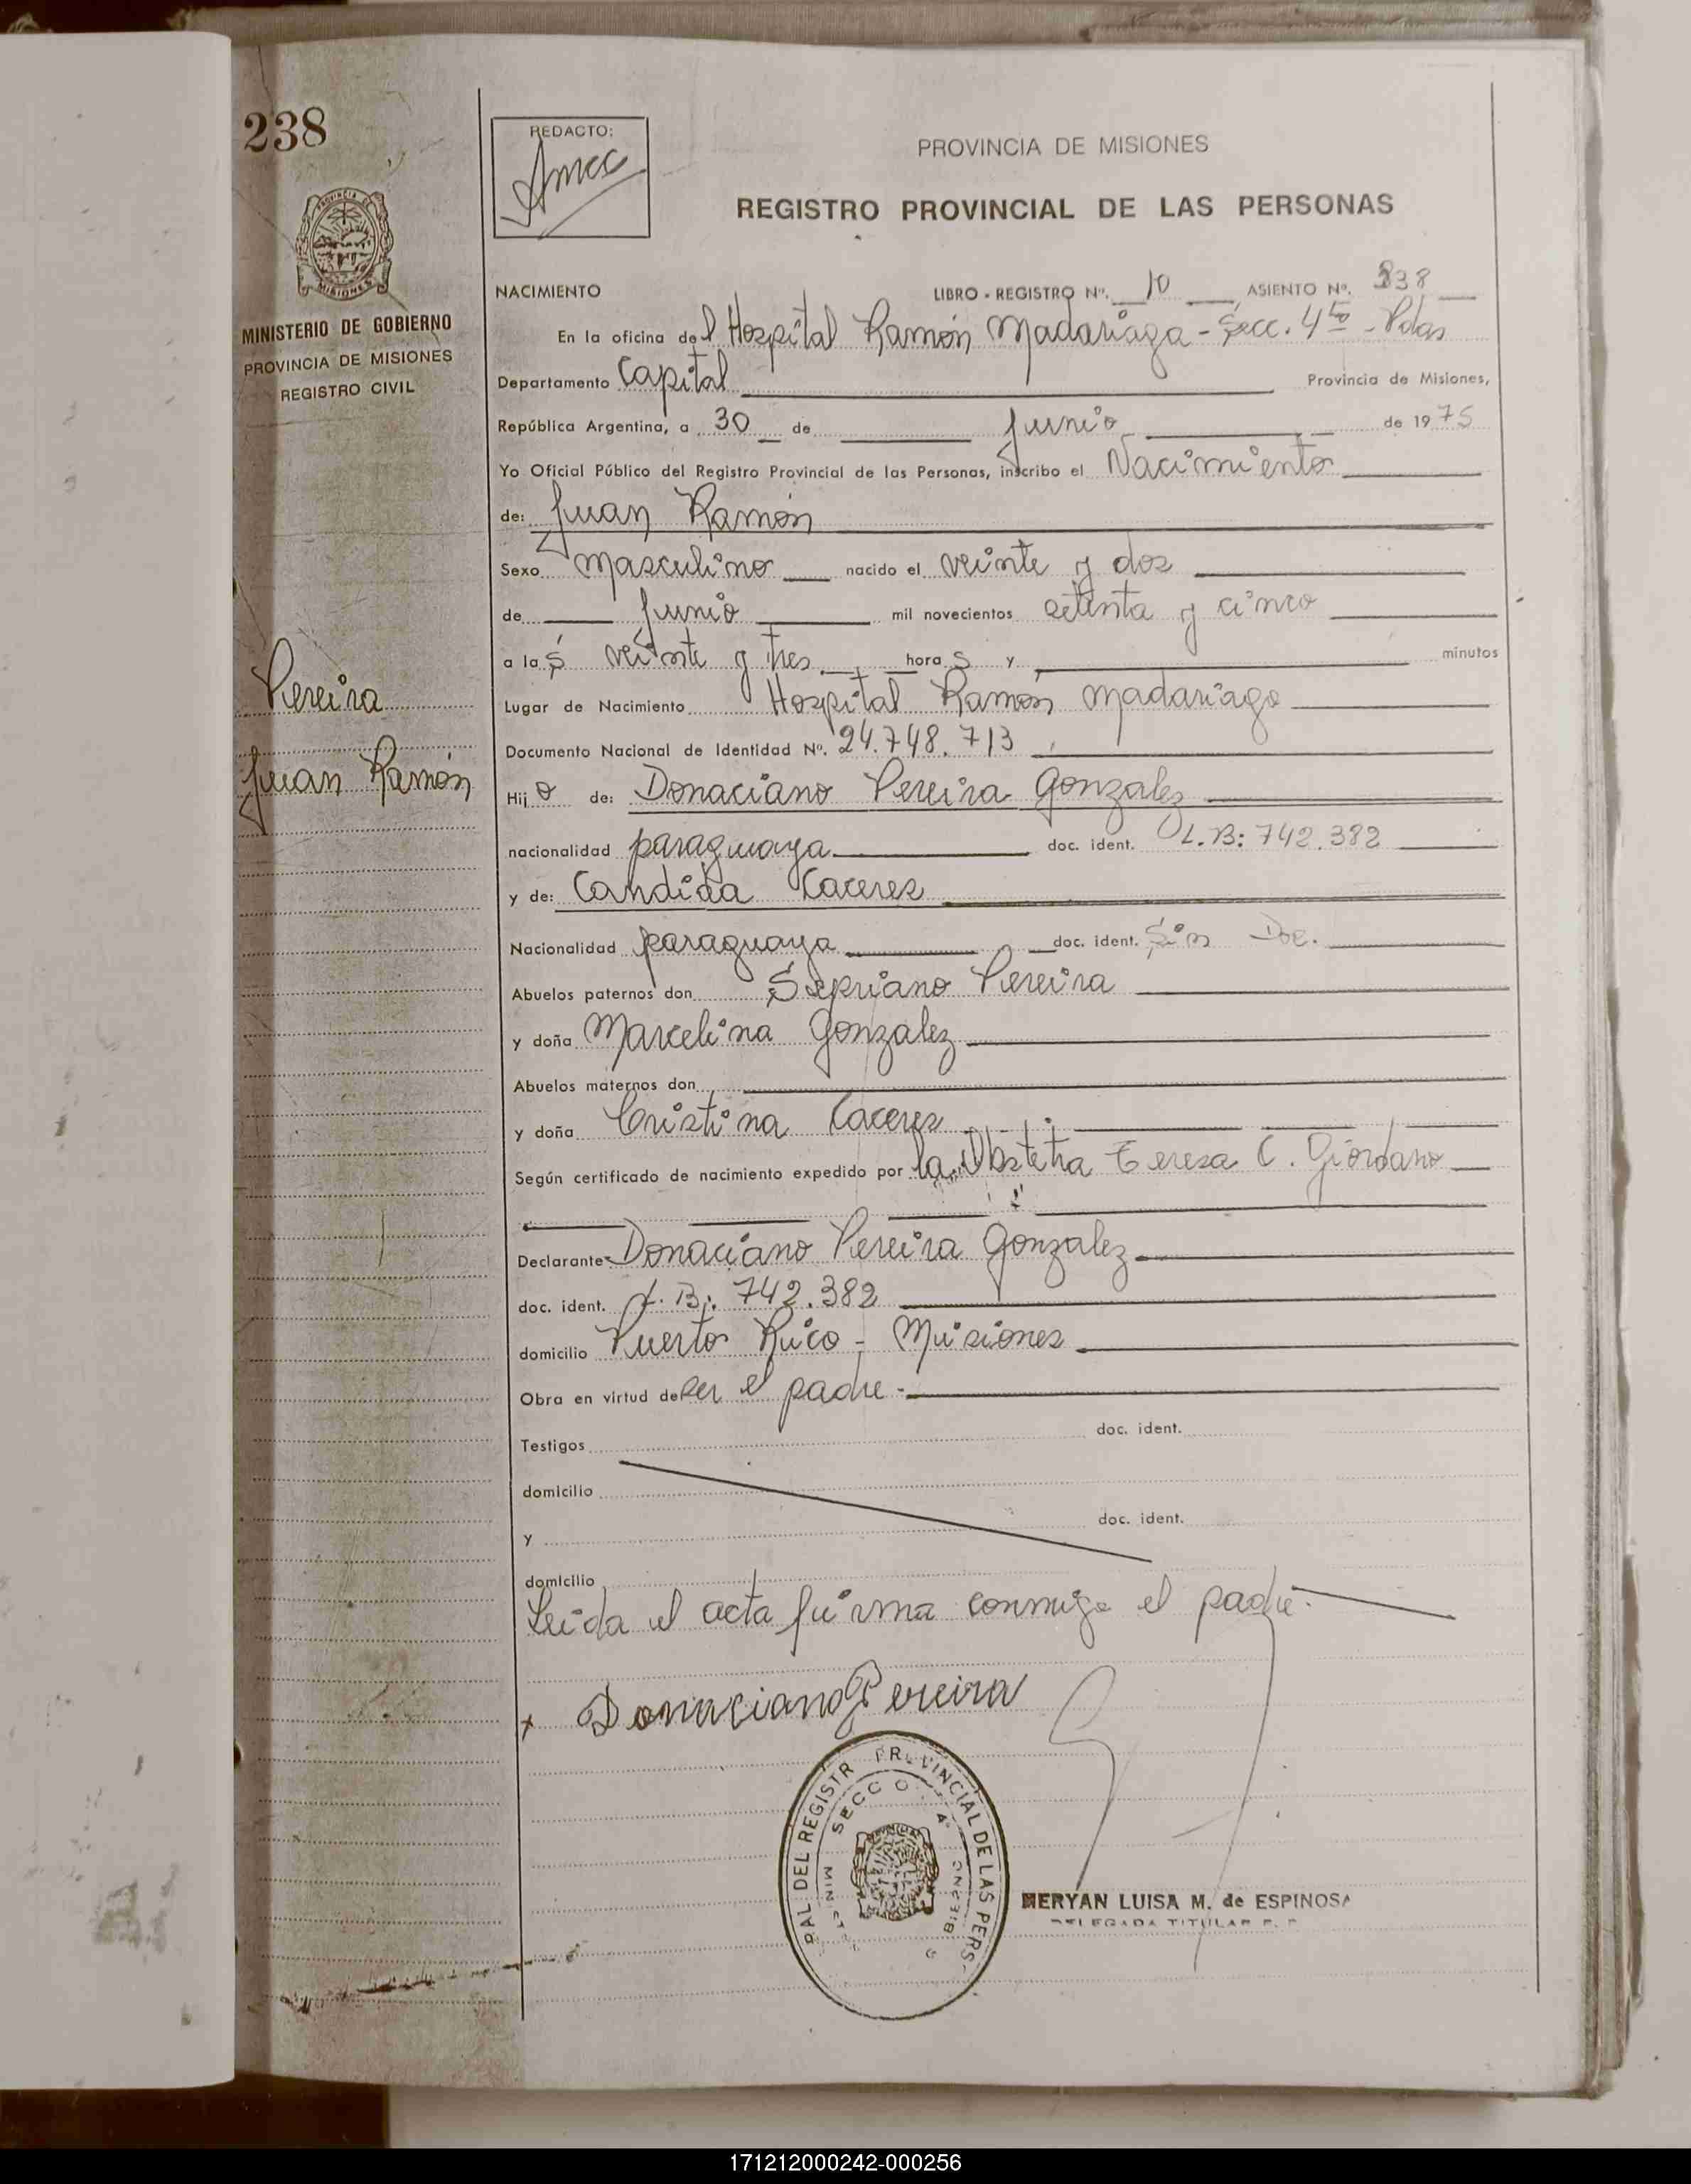 238
REDACTO:
PROVINCIA DE MISIONES
REGISTRO PROVINCIAL DE LAS PERSONAS
PROVINCIA DE
MISIONES
MINISTERIO DE GOBIERNO
PROVINCIA DE MISIONES
REGISTRO CIVIL
NACIMIENTO LIBRO - REGISTRO Nº. 10 ASIENTO Nº. 838
En la oficina del Hospital Ramón Madariaga - Secc. 4ta - Pdas
Departamento Capital Provincia de Misiones,
República Argentina, a 30 de Junio de 1975
Yo Oficial Público del Registro Provincial de las Personas, inscribo el Nacimiento
de: Juan Ramón
Sexo Masculino nacido el veinte y dos
de Junio mil novecientos setenta y cinco
a las veinte y tres horas y minutos
Pereira
Juan Ramón
Lugar de Nacimiento Hospital Ramón Madariaga
Documento Nacional de Identidad Nº. 24.748.713
Hijo de: Donaciano Pereira Gonzalez
nacionalidad paraguaya doc. ident. L.B: 742.382
y de: Candida Caceres
Nacionalidad paraguaya doc. ident. Sin Doc.
Abuelos paternos don Sepriano Pereira
y doña Marcelina Gonzalez
Abuelos maternos don
y doña Cristina Caceres
Según certificado de nacimiento expedido por la Obstetra Teresa C. Giordano
Declarante Donaciano Pereira Gonzalez
doc. ident. L.B: 742.382
domicilio Puerto Rico - Misiones
Obra en virtud de ser el padre.
Testigos doc. ident.
domicilio
y doc. ident.
domicilio
Leida el acta firma conmigo el padre.
x Donaciano Pereira
MERYAN LUISA M. de ESPINOSA
DELEGADA TITULAR
171212000242-000256